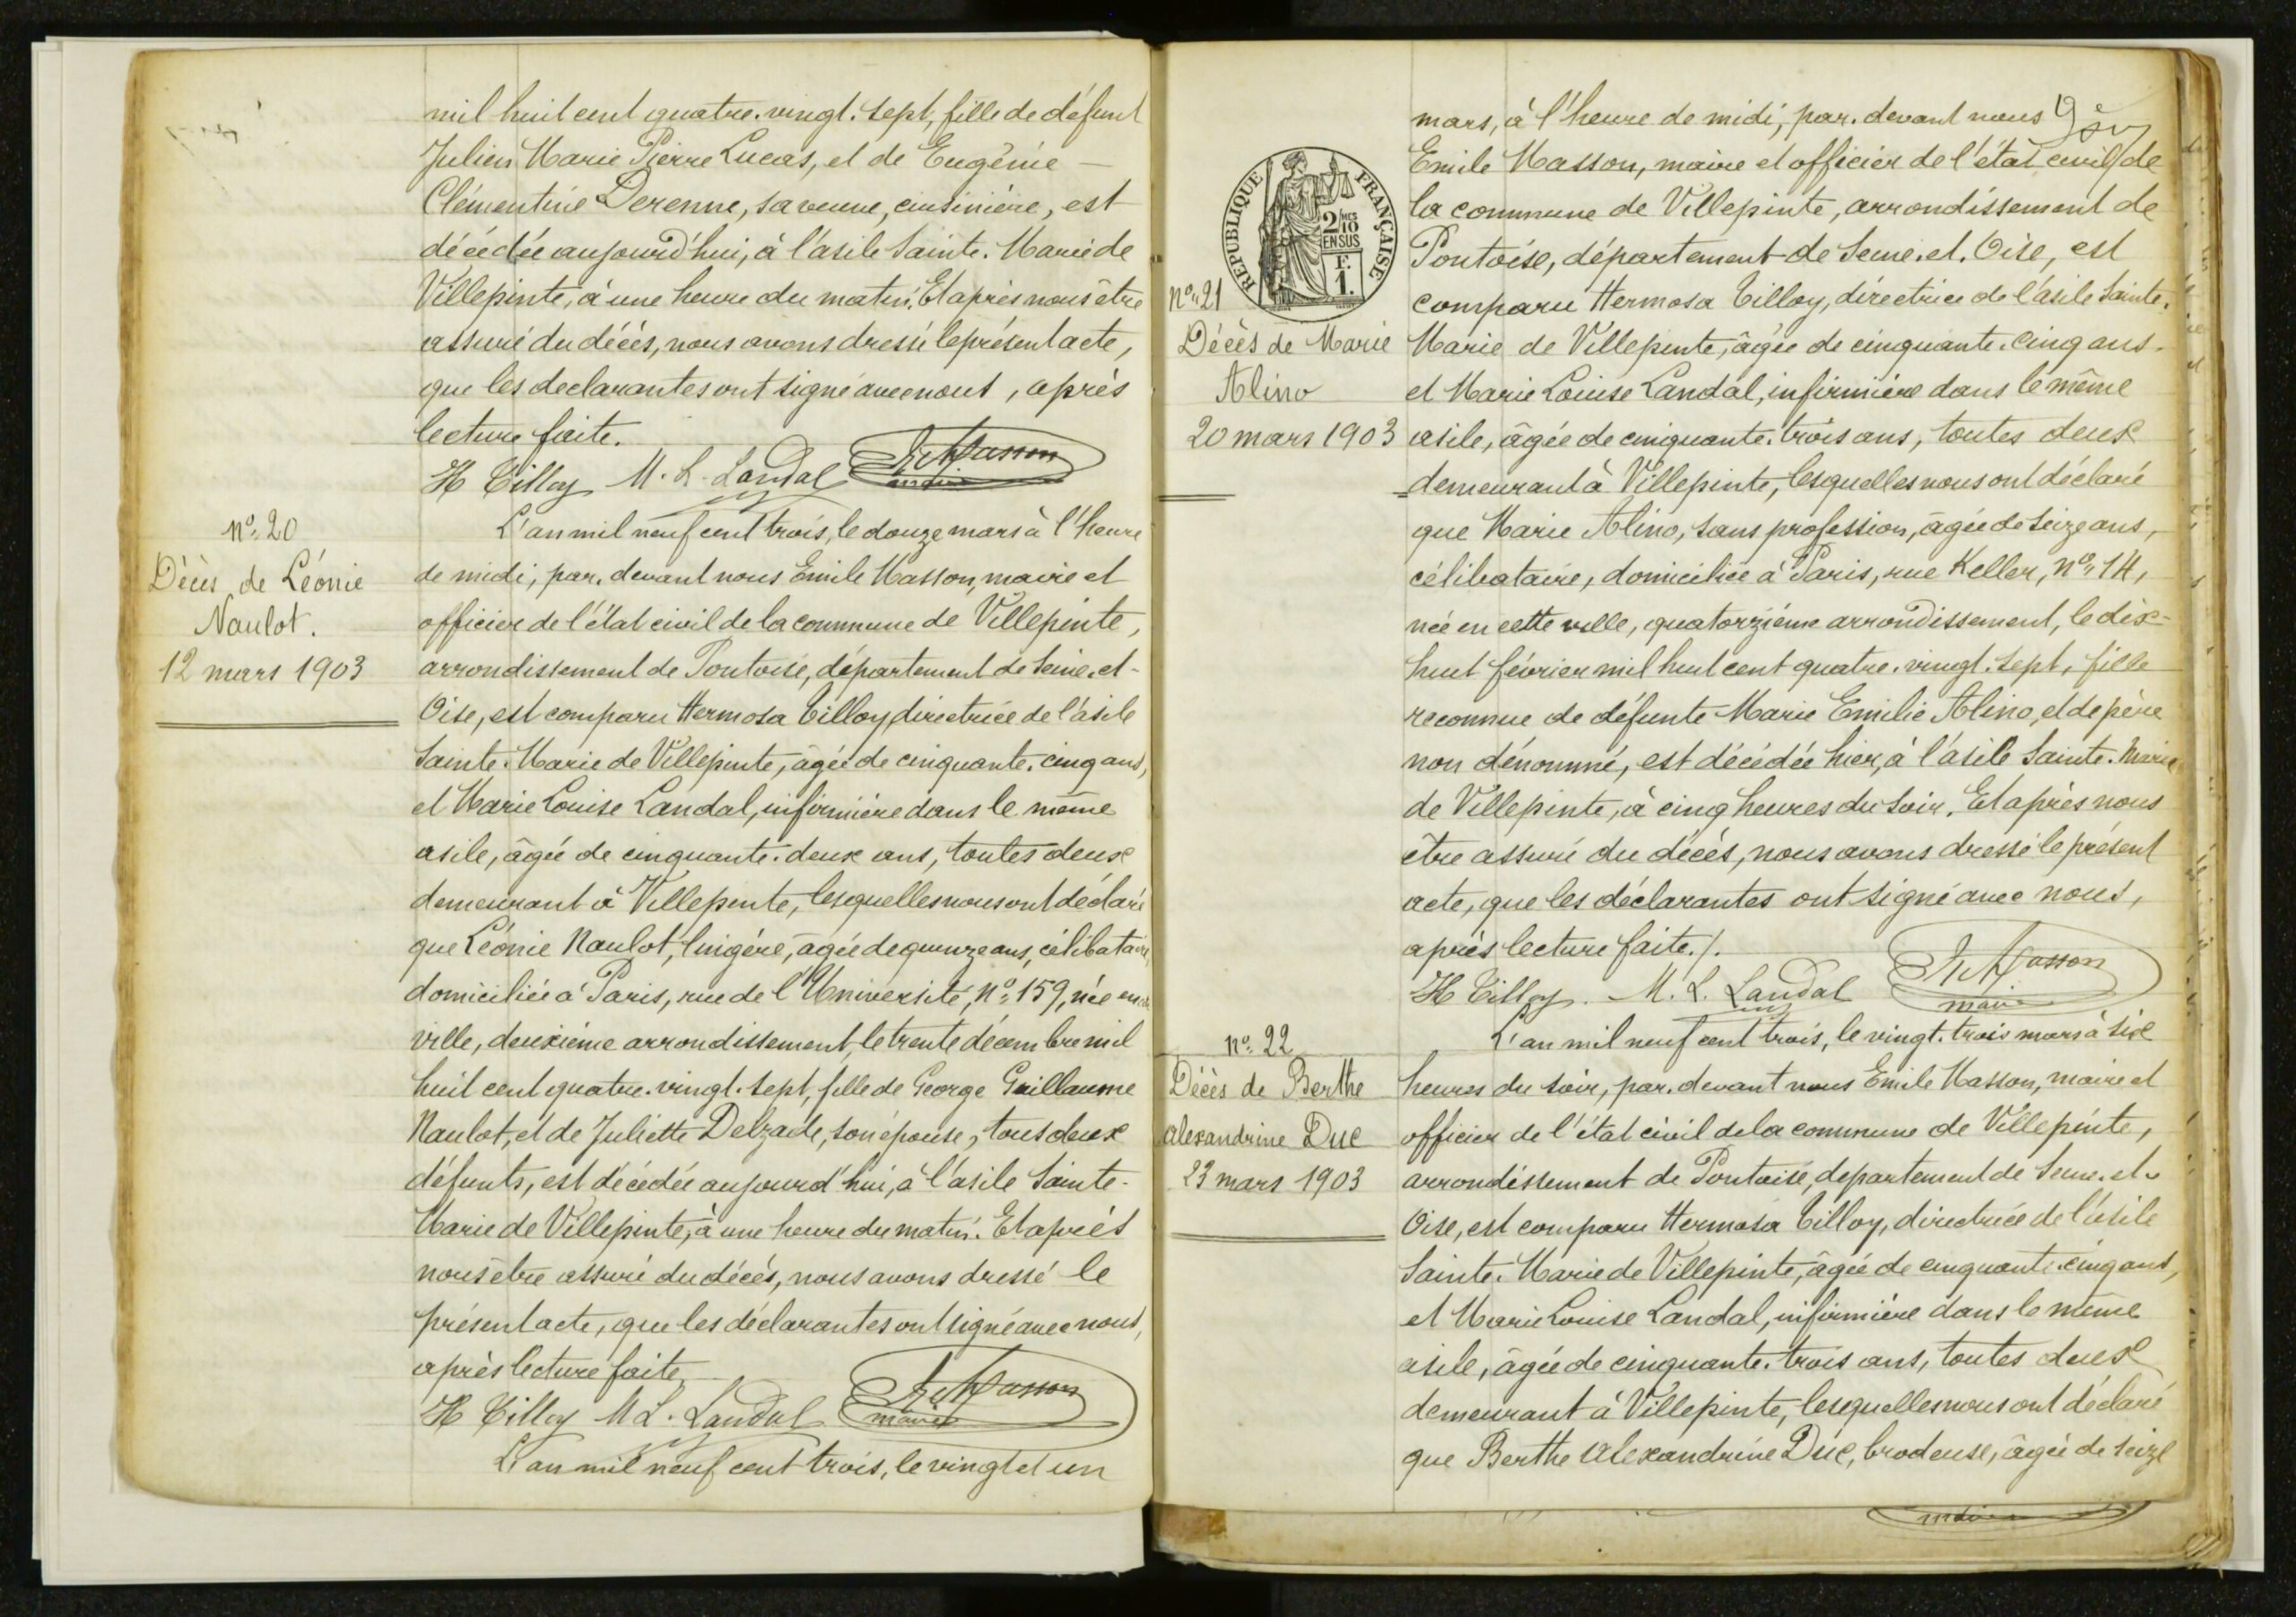 mil huit cent quatre. vingt. sept, fille de défunt
Julien Marie Pierre Lucas, et de Eugénie —
Clémentine Derenne, sa veuve, cuisinière, est
décédée aujourd'hui, à l'asile Sainte. Marie de
Villepinte, à une heure du matin. Et après nous être
assuré du décès, nous avons dressé le présent acte,
que les declarantes ont signé avec nous, après
lecture faite.
H Tilloy M. L. Landal Masson
maire
N° 20
Décès de Léonie
Naulot.
12 mars 1903
L'an mil neuf cent trois, le douze mars à l'heure
de midi, par. devant nous Emile Masson, maire et
officier de l'état civil de la commune de Villepinte,
arrondissement de Pontoise, département de Seine. et-
Oise, est comparu Hermosa Tilloy, directrice de l'asile
Sainte. Marie de Villepinte, âgée de cinquante. cinq ans,
et Marie Louise Landal, infirmière dans le même
asile, âgée de cinquante. deux ans, toutes deux
demeurant à Villepinte, lesquelles nous ont déclaré
que Léonie Naulot, lingère, âgée de quinze ans, célibataire,
domiciliée à Paris, rue de l'Université, N° 159, née en
ville, deuxième arrondissement, le trente décembre mil
huit cent quatre. vingt. sept, fille de George Guillaume
Naulot, et de Juliette Delzade, son épouse, tous deux
défunts, est décédée aujourd'hui, à l'asile Sainte-
Marie de Villepinte, à une heure du matin. Et après
nous être assuré du décès, nous avons dressé le
présent acte, que les déclarantes ont signé avec nous,
après lecture faite.
H Tilloy M L. Landal Masson
maire
L'an mil neuf cent trois, le vingt et un
mars, à l'heure de midi, par. devant nous
Emile Masson, maire et officier de l'état civil de
la commune de Villepinte, arrondissement de
Pontoise, département de Seine. et. Oise, est
comparu Hermosa Tilloy, directrice de l'asile Sainte.
Marie de Villepinte, âgée de cinquante. cinq ans.
et Marie Louise Landal, infirmière dans le même
asile, âgée de cinquante. trois ans, toutes deux
demeurant à Villepinte, lesquelles nous ont déclaré
que Marie Alino, sans profession, âgée de seize ans,
célibataire, domiciliée à Paris, rue Keller, N° 14,
née en cette ville, quatorzième arrondissement, le dix-
huit février mil huit cent quatre. vingt. sept, fille
reconnue de défunte Marie Emilie Alino, et de père
non dénommé, est décédée hier, à l'asile Sainte. Marie
de Villepinte, à cinq heures du soir. Et après nous
être assuré du décès, nous avons dressé le présent
acte, que les déclarantes ont signé avec nous,
après lecture faite./.
H Tilloy. M. L. Landal Masson
maire
REPUBLIQUE FRANÇAISE
2/10 MES
EN SUS
F.
1.
N° 21
Décès de Marie
Alino
20 mars 1903
N° 22
Décès de Berthe
Alexandrine Duc
23 mars 1903
L'an mil neuf cent trois, le vingt. trois mars à six
heures du soir, par. devant nous Emile Masson, maire et
officier de l'état civil de la commune de Villepinte,
arrondissement de Pontoise, departement de Seine. et.
Oise, est comparu Hermosa Tilloy, directrice de l'asile
Sainte. Marie de Villepinte, âgée de cinquante. cinq ans,
et Marie Louise Landal, infirmière dans le même
asile, âgée de cinquante. trois ans, toutes deux
demeurant à Villepinte, lesquelles nous ont déclaré
que Berthe Alexandrine Duc, brodeuse, âgée de seize
maire